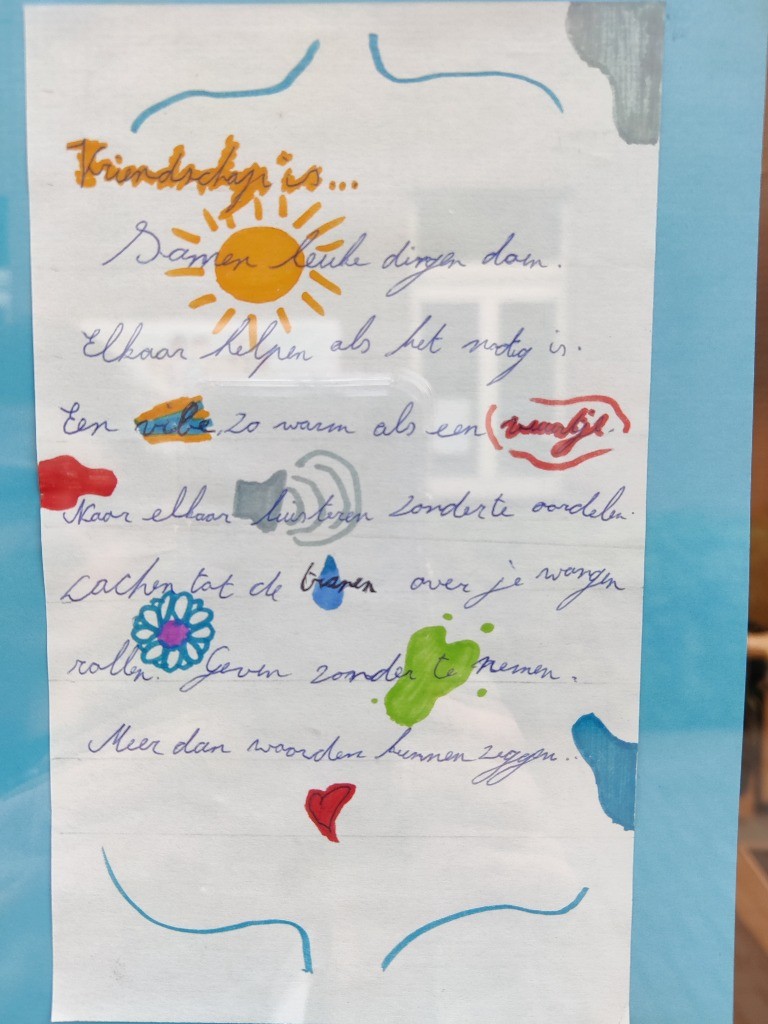 Vriendschap is...
Samen leuke dingen doen.
Elkaar helpen als het nodig is.
Een vibe, zo warm als een vuurtje.
Naar elkaar luisteren zonder te oordelen.
Lachen tot de tranen over je wangen
rollen. Geven zonder te nemen.
Meer dan woorden kunnen zeggen..